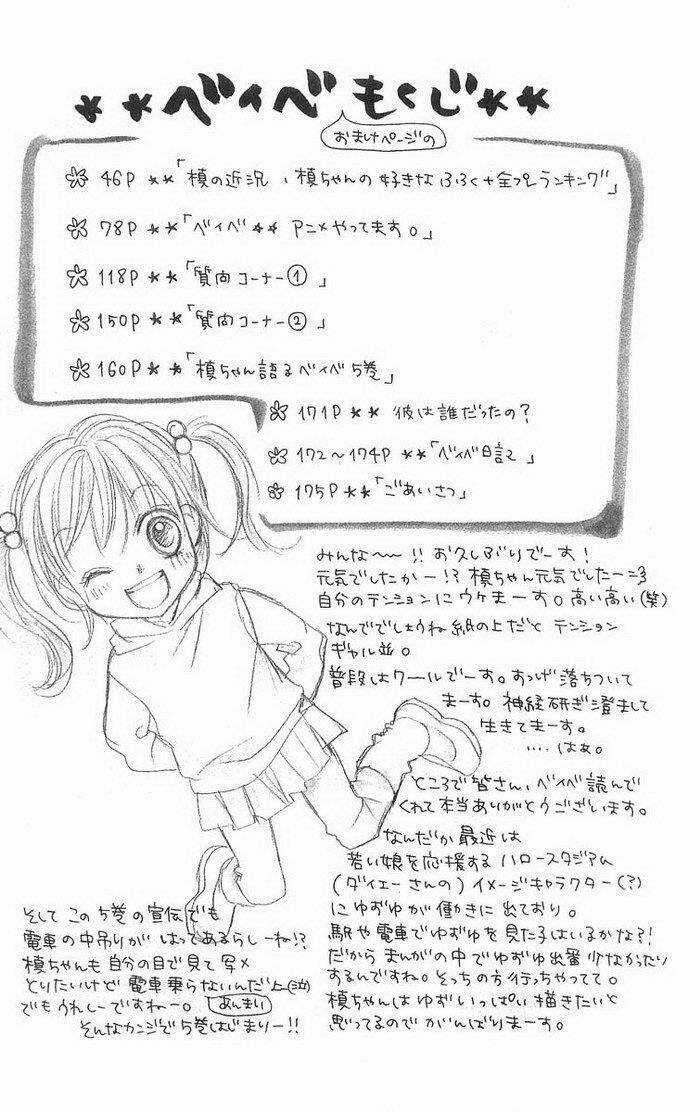 **ベイベもくじ**
おまけページの
46P **「槙の近況、槙ちゃんの好きなふろく+全プレランキング」
78P **「ベイベ** アニメやってます。」
118P **「質問コーナー①」
150P **「質問コーナー②」
160P **「槙ちゃん語るベイベ5巻」
171P ** 彼は誰だったの?
172~174P **「ベイベ日記」
175P **「ごあいさつ」
みんな~~!! お久しぶりでーす!
元気でしたかー!? 槙ちゃん元気でしたー
自分のテンションにウケまーす。高い高い(笑)
なんででしょうね紙の上だと テンション
ギャル並。
普段はクールでーす。すっげ落ちついて
まーす。神経研ぎ澄まして
生きてまーす。
‥‥はぁ。
ところで皆さん、ベイベ読んで
くれて本当ありがとうございます。
なんだか最近は
若い娘を応援する ハロースタジアム
(ダイエーさんの) イメージキャラクター(?)
にゆずゆが働きに出ており。
駅や電車でゆずゆを見た子はいるかな?!
だから まんがの中でゆずゆ出番 少なかったり
するんですね。そっちの方行っちゃってて。
槙ちゃんは ゆずいっぱい描きたいと
思ってるので がんばりまーす。
そして この5巻の宣伝でも
電車の中吊りが はってあるらしーね!?
槙ちゃんも 自分の目で見て 写メ
とりたいけど 電車 乗らないんだよ(泣)
でも うれしーですねー。あんまい
そんなカンジで5巻はじまりー!!